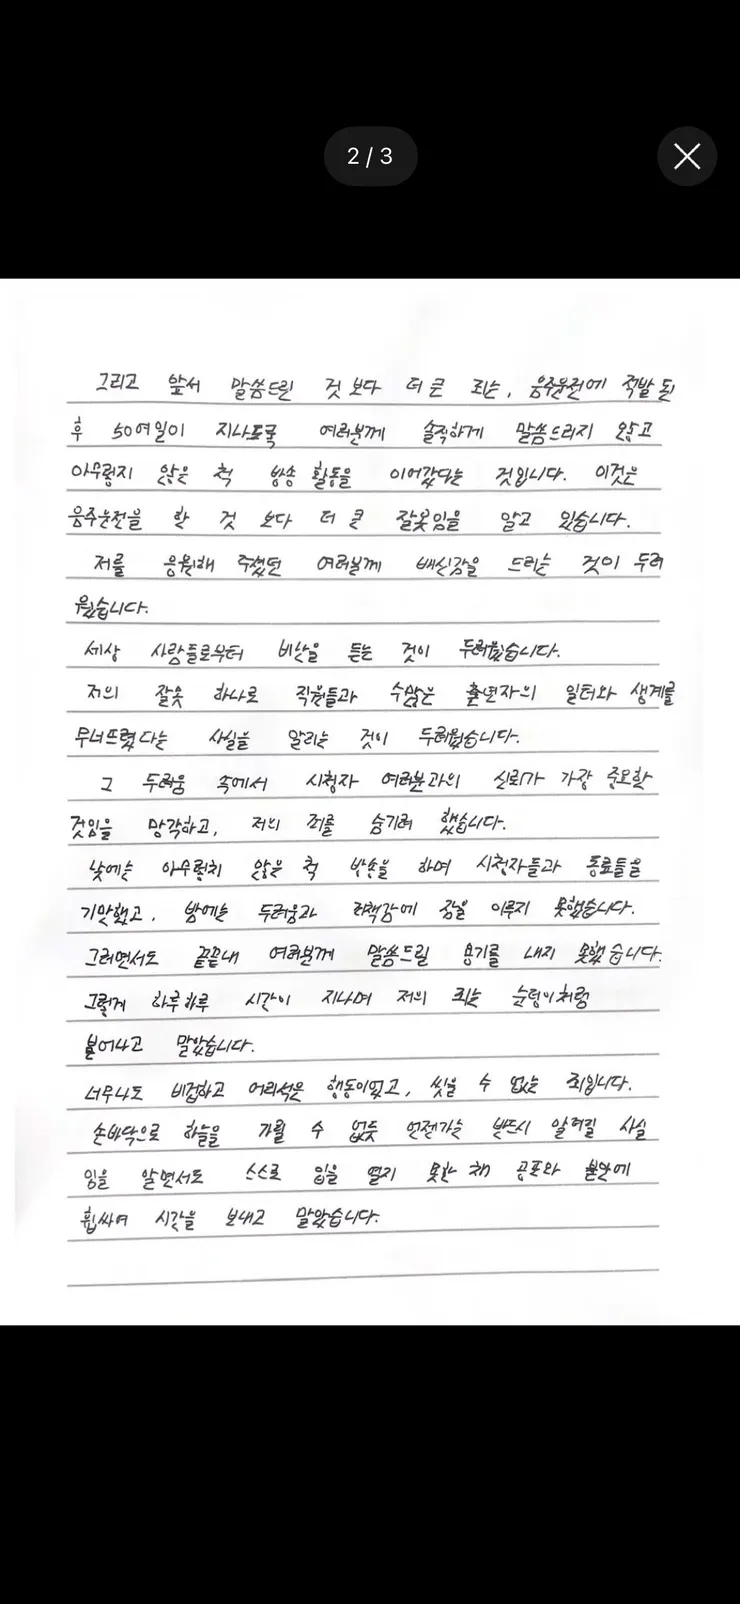 2 / 3
그리고 앞서 말씀드린 것 보다 더 큰 죄는, 음주운전에 적발 된
후 50여일이 지나도록 여러분께 솔직하게 말씀드리지 않고
아무렇지 않은 척 방송 활동을 이어갔다는 것입니다. 이것은
음주운전을 한 것 보다 더 큰 잘못임을 알고 있습니다.
저를 응원해 주셨던 여러분께 배신감을 드리는 것이 두려
웠습니다.
세상 사람들로부터 비난을 듣는 것이 두려웠습니다.
저의 잘못 하나로 직원들과 수많은 출연자의 일터와 생계를
무너뜨렸다는 사실을 알리는 것이 두려웠습니다.
그 두려움 속에서 시청자 여러분과의 신뢰가 가장 중요한
것임을 망각하고, 저의 죄를 숨기려 했습니다.
낮에는 아무렇지 않은 척 방송을 하며 시청자들과 동료들을
기만했고, 밤에는 두려움과 죄책감에 잠을 이루지 못했습니다.
그러면서도 끝끝내 여러분께 말씀드릴 용기를 내지 못했습니다.
그렇게 하루하루 시간이 지나며 저의 죄는 눈덩이처럼
불어나고 말았습니다.
너무나도 비겁하고 어리석은 행동이었고, 씻을 수 없는 죄입니다.
손바닥으로 하늘을 가릴 수 없듯 언젠가는 반드시 알려질 사실
임을 알면서도 스스로 입을 열지 못한 채 공포와 불안에
휩싸여 시간을 보내고 말았습니다.